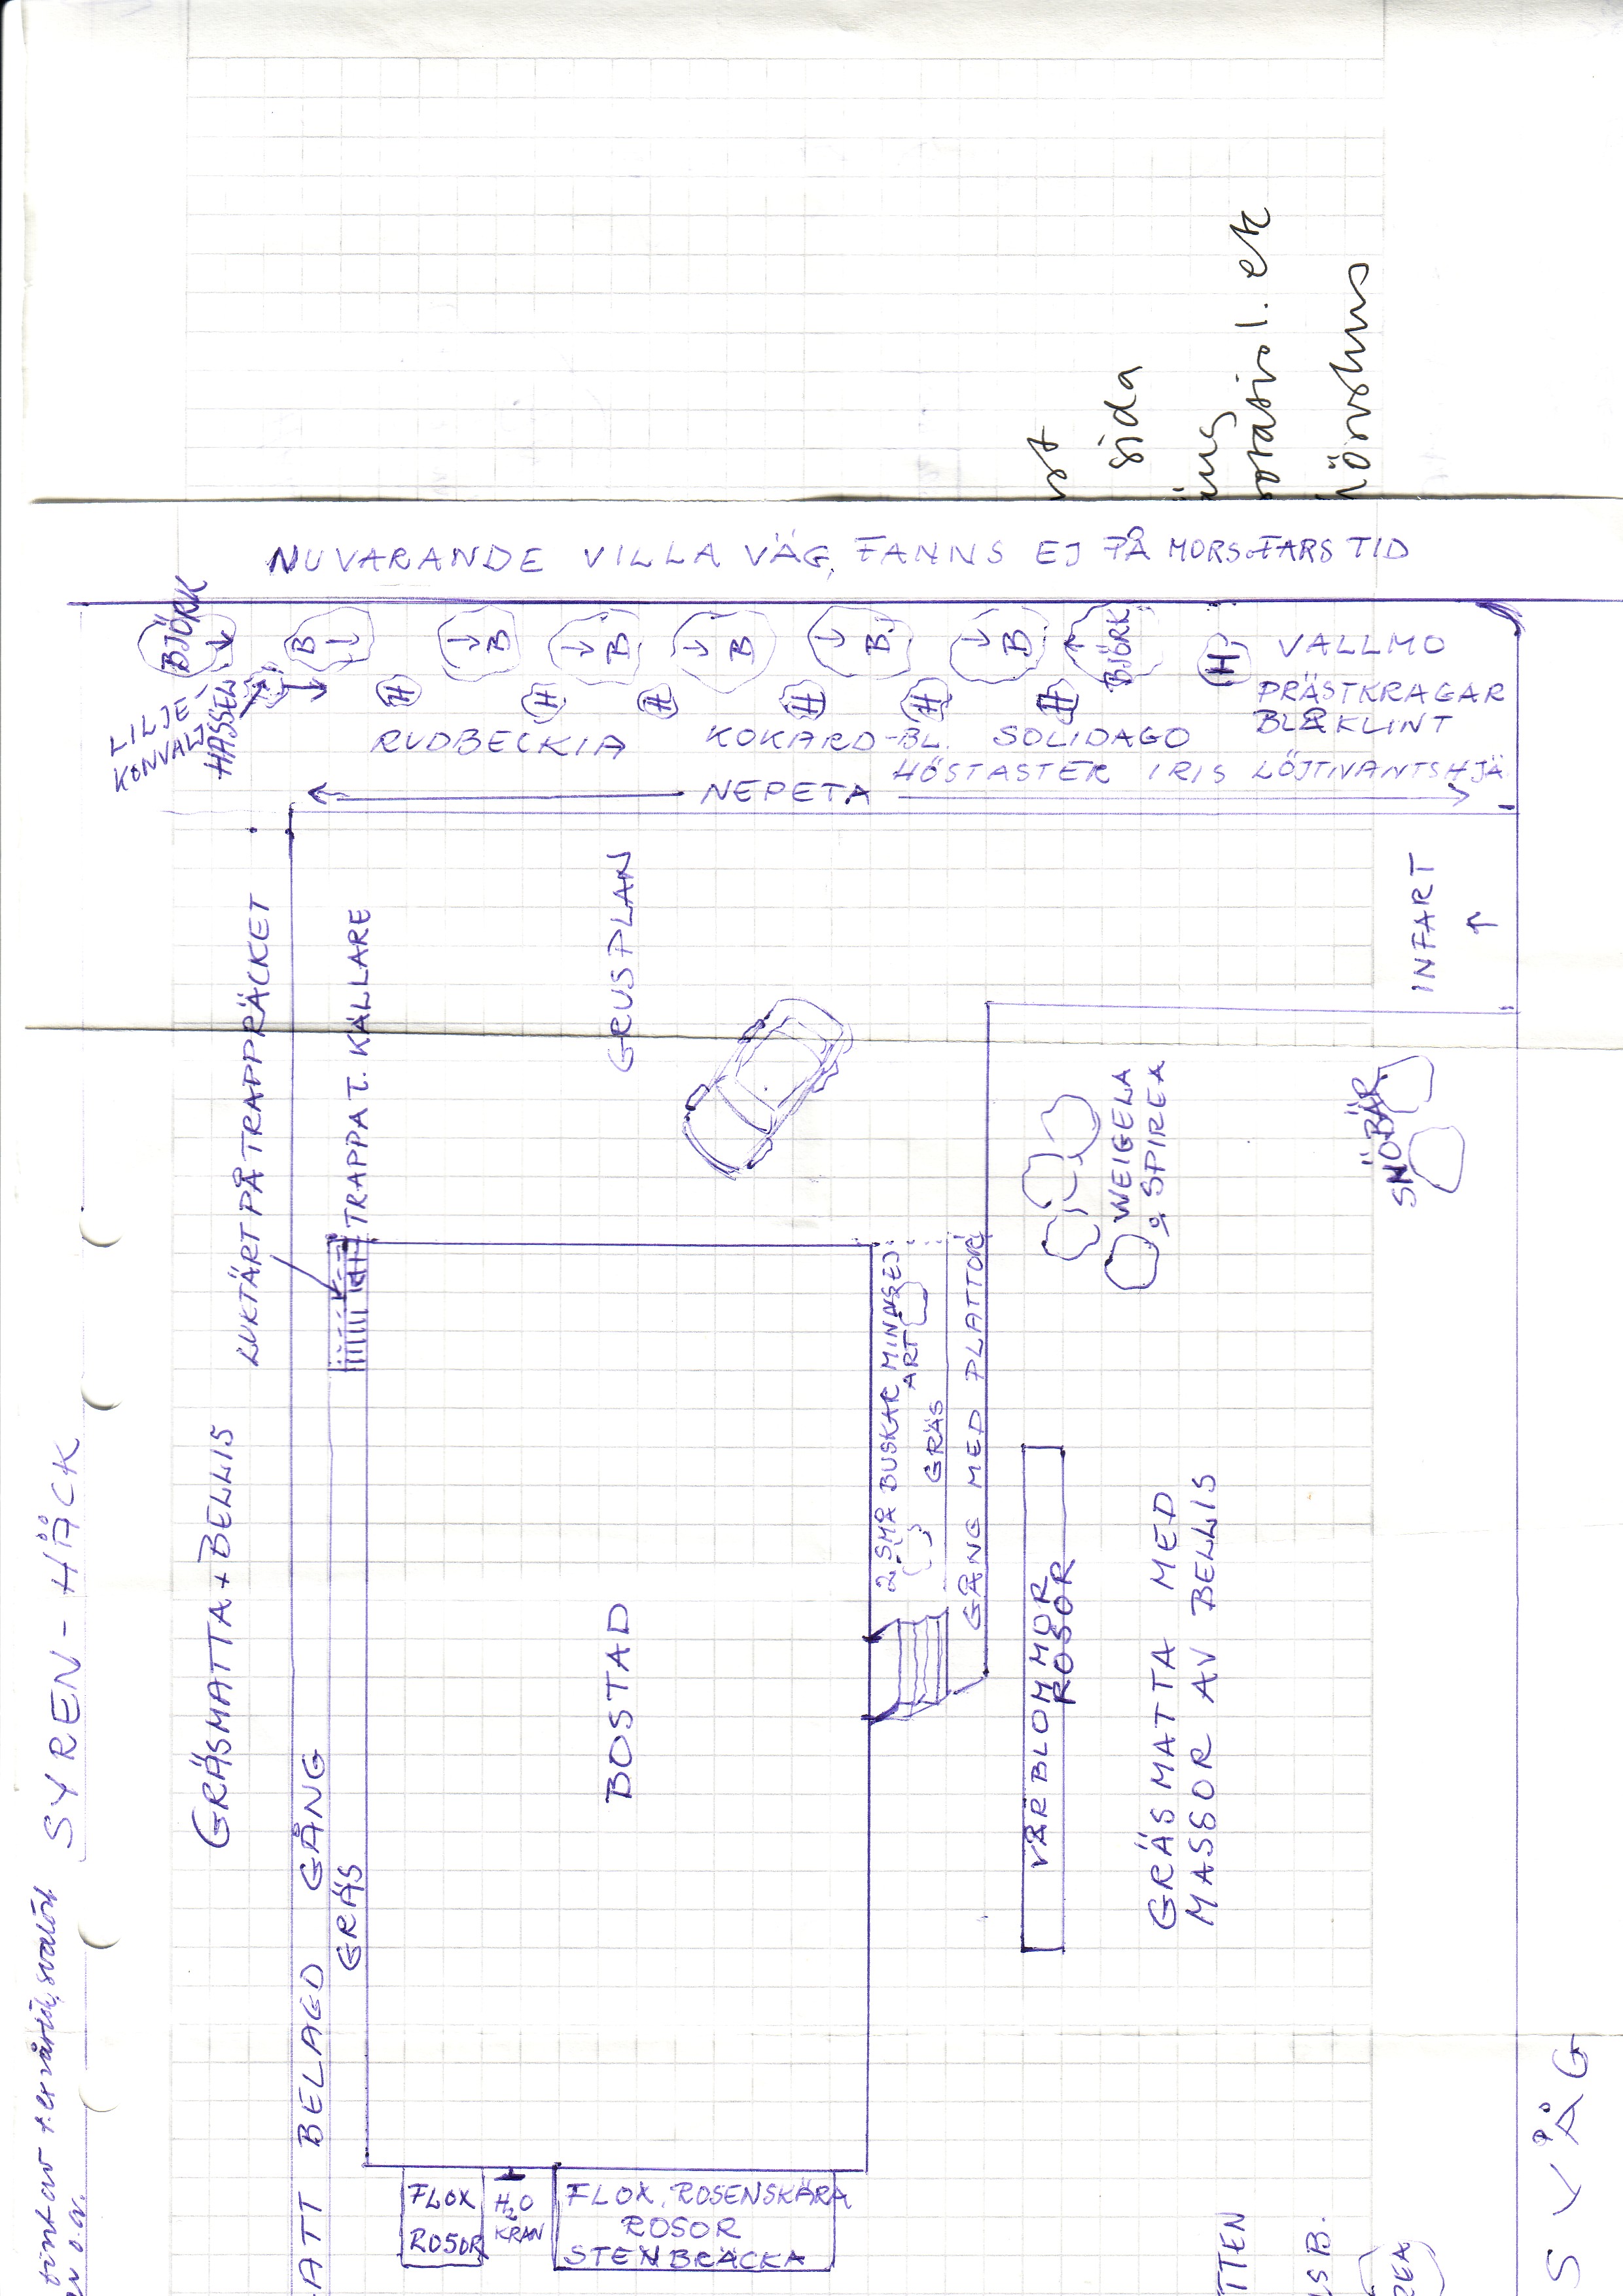 sida
NUVARANDE VILLA VÄG, FANNS EJ PÅ MORS.FARS TID
BJÖRK
B
B
B
B
B
B
BJÖRK
H
VALLMO
PRÄSTKRAGAR
BLÅKLINT
LILJE-
KONVALJ
HASSEL
H
H
H
H
H
H
RUDBECKIA
KOKARD-BL.
SOLIDAGO
HÖSTASTER IRIS LÖJTNANTSHJÄ
NEPETA
INFART
GRUSPLAN
LUKTÄRT PÅ TRAPPRÄCKET
TRAPPA T. KÄLLARE
WEIGELA
& SPIREA
SNÖBÄR
2 SMÅ BUSKAR MINNS EJ
ART
GRÄS
GÅNG MED PLATTOR
SYREN-HÄCK
GRÄSMATTA + BELLIS
ATT BELAGD GÅNG
GRÄS
BOSTAD
VÅRBLOMMOR
ROSOR
GRÄSMATTA MED
MASSOR AV BELLIS
FLOX
ROSOR
H2O
KRAN
FLOX, ROSENSKÄRA
ROSOR
STENBRÄCKA
TTEN
S B.
REA
S VÄG